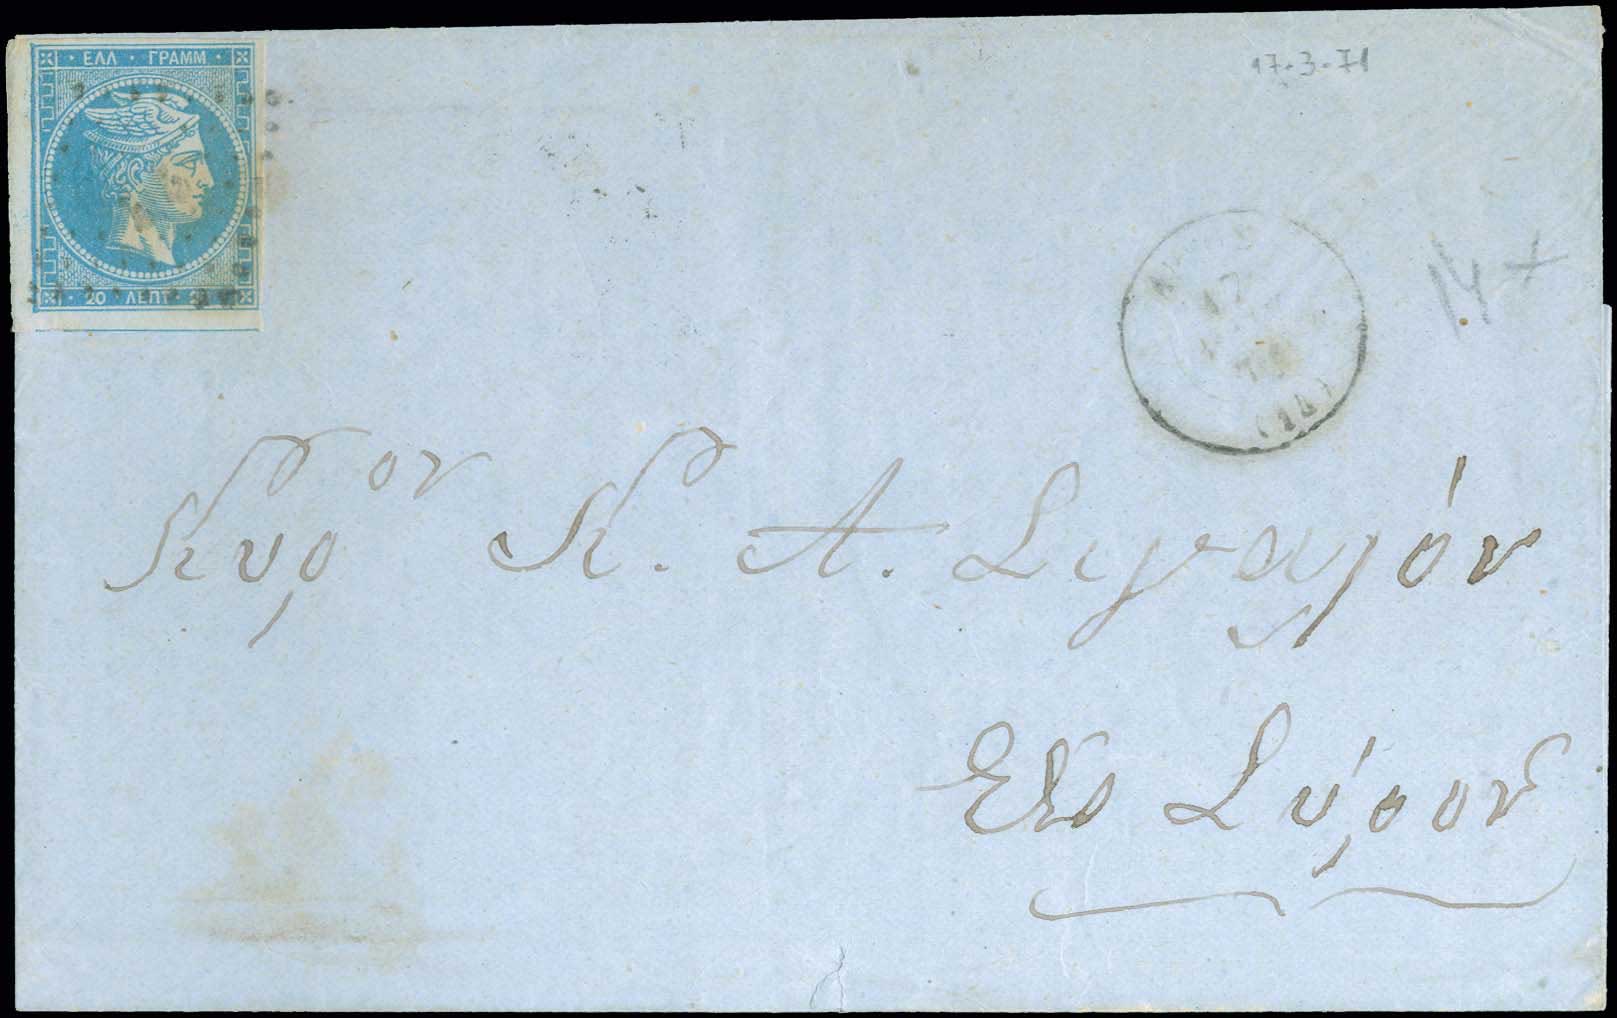 · ΕΛΛ · ΓΡΑΜΜ ·
· 20 ΛΕΠΤ
17-3-71
17
(14)
14 +
Κυρον Κ. Α. Σιγαλόν
Εις Σύρον